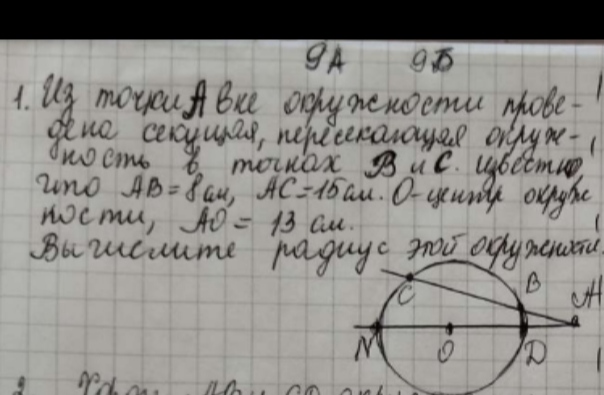 9А 9Б
1. Из точки А вне окружности прове-
дена секущая, пересекающая окруж-
ность в точках В и С. известно,
что АВ = 8 см, АС = 15 см. О-центр окруж
ности, АО = 13 см.
Вычислите радиус этой окружности.
C B A
N O D
2.